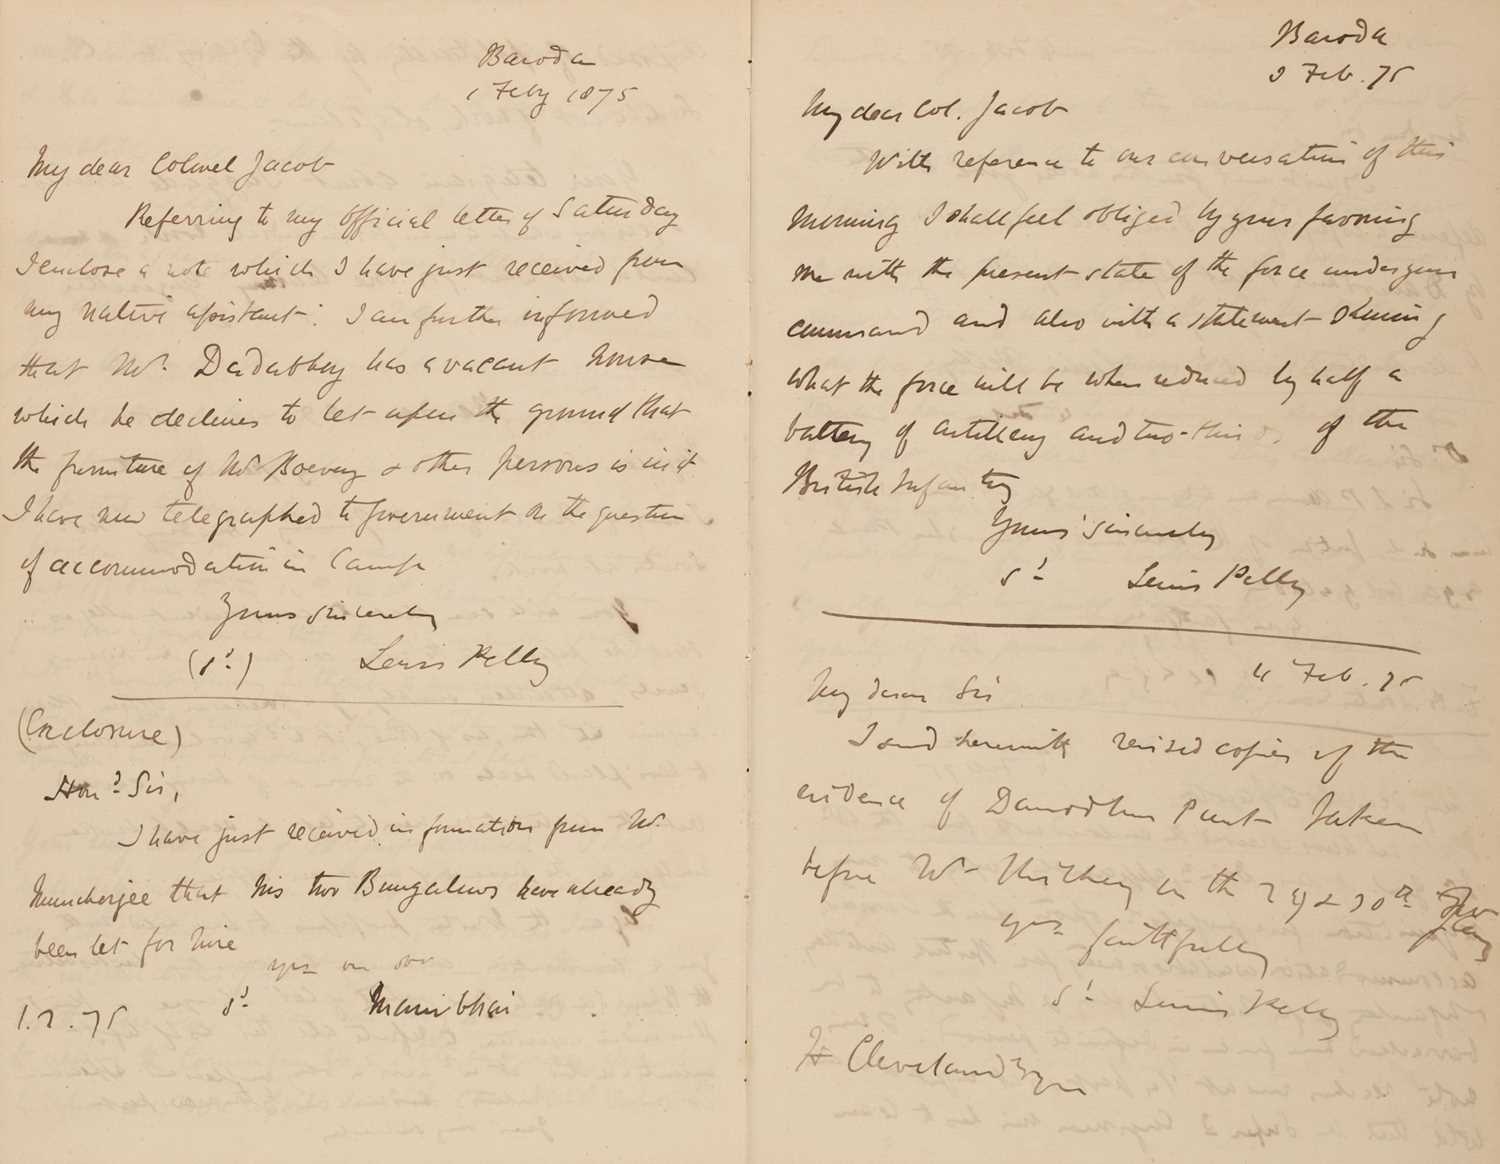 Baroda
1 Feby 1875
My dear Colonel Jacob
Referring to my official letter of Saturday
I enclose a note which I have just received from
my native assistant. I am further informed
that Mr. Dadabhoy has a vacant house
which he declines to let upon the ground that
the furniture of Mr Boevey & other persons is in it
I have now telegraphed to Government on the question
of accommodation in Camp
Yours sincerely
(sd.) Lewis Pelly
(Enclosure)
Hond. Sir,
I have just received information from Mr.
Muncherjee that his two Bungalows have already
been let for hire
yrs
sd Manibhai
1.2.75
Baroda
Feb. 75
My dear Col. Jacob
With reference to our conversation of this
morning I shall feel obliged by your favoring
me with the present state of the force under your
command and also with a statement showing
what the force will be when reduced by half a
battery of artillery and two-thirds of the
British Infantry
Yours sincerely
sd. Lewis Pelly
4 Feb. 75
My dear Sir
I send herewith revised copies of the
evidence of Damodhur Punt taken
before Mr on the 29 & 30th Jany
yrs faithfully
sd. Lewis Pelly
H Cleveland Esqre